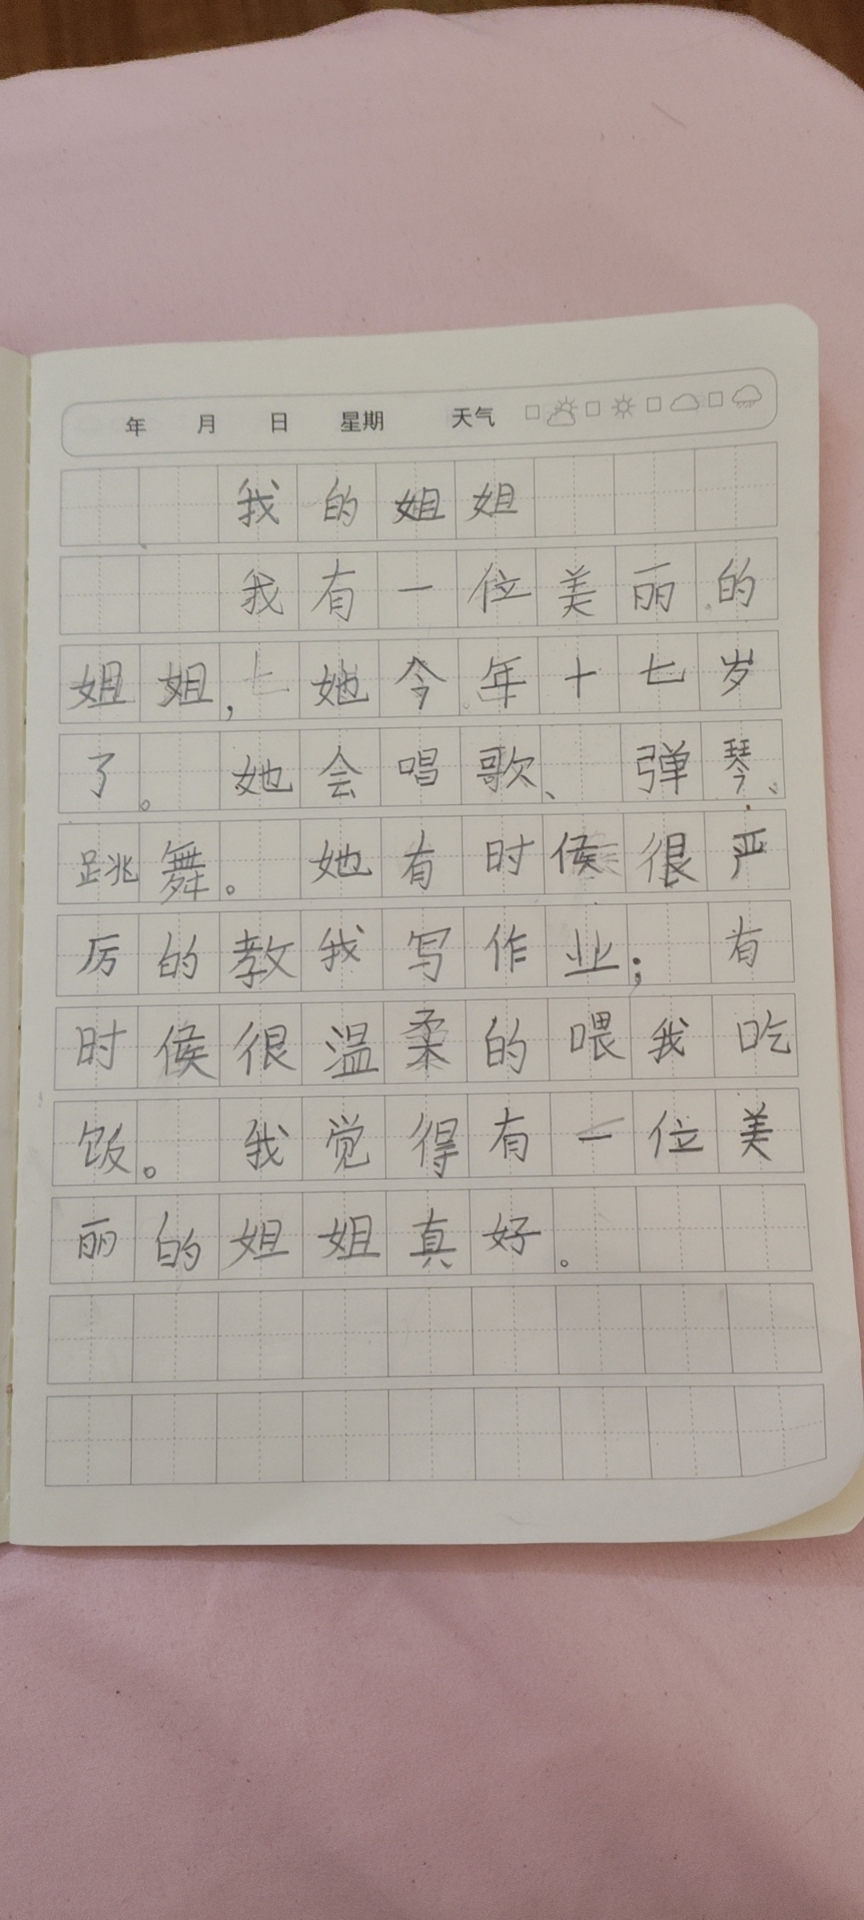 年 月 日 星期 天气
我的姐姐
我有一位美丽的
姐姐，她今年十七岁
了。她会唱歌、弹琴、
跳舞。她有时候很严
厉的教我写作业；有
时候很温柔的喂我吃
饭。我觉得有一位美
丽的姐姐真好。